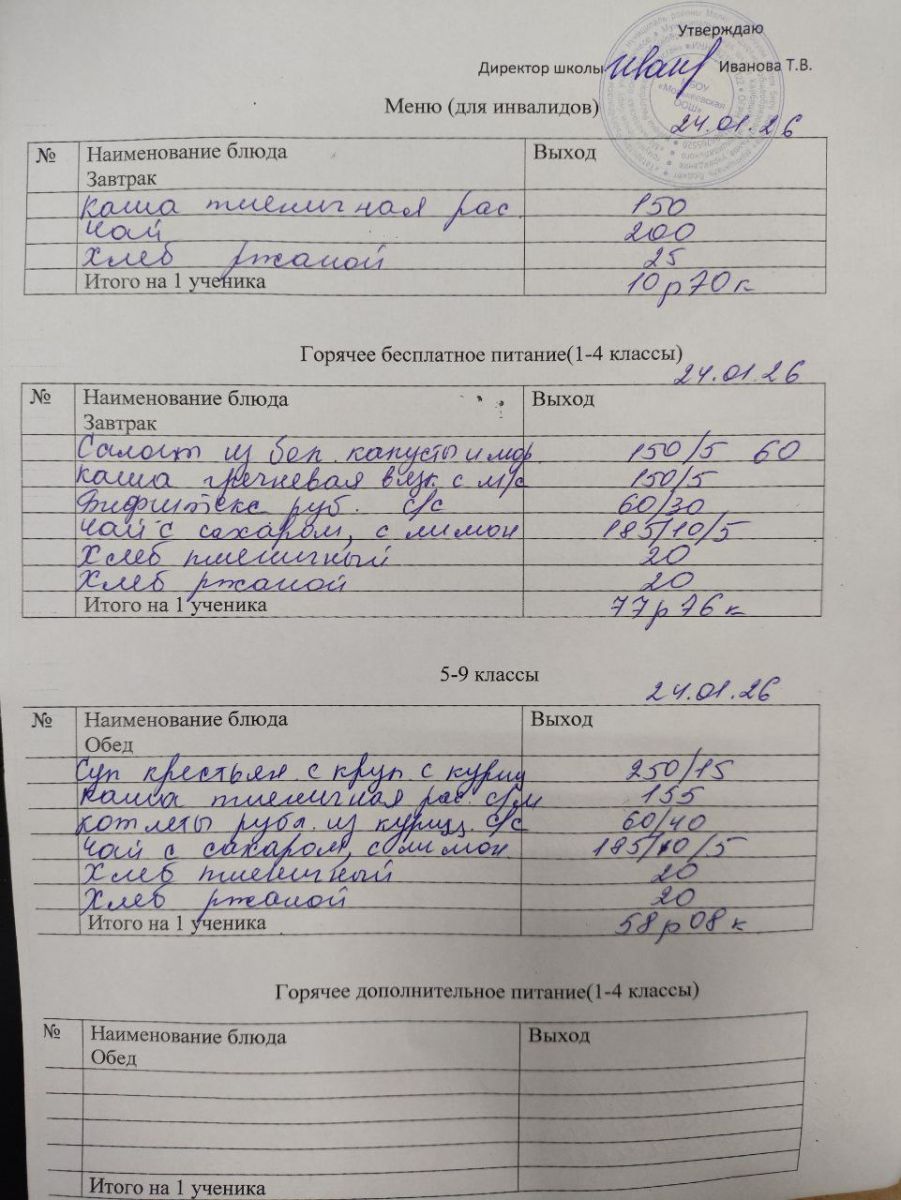 Утверждаю
Директор школы Иванова Т.В.
МБОУ
ООШ»
Меню (для инвалидов)
24.01.26
№ Наименование блюда Выход
Завтрак
каша пшеничная рас. 150
чай 200
хлеб ржаной 25
Итого на 1 ученика 10р70к
Горячее бесплатное питание(1-4 классы)
24.01.26
№ Наименование блюда Выход
Завтрак
Салат из бел. капусты и мор 150/5 60
каша гречневая вязк с м/с 150/5
Бифштекс руб. с/с 60/30
чай с сахаром, с лимон 185/10/5
Хлеб пшеничный 20
Хлеб ржаной 20
Итого на 1 ученика 77р76к
5-9 классы
24.01.26
№ Наименование блюда Выход
Обед
Суп крестьян. с круп с куриц 250/15
каша пшеничная рас. с/м 155
котлеты рубл. из куриц. с/с 60/40
чай с сахаром, с лимон 185/10/5
Хлеб пшеничный 20
Хлеб ржаной 20
Итого на 1 ученика 58р08к
Горячее дополнительное питание(1-4 классы)
№ Наименование блюда Выход
Обед
Итого на 1 ученика